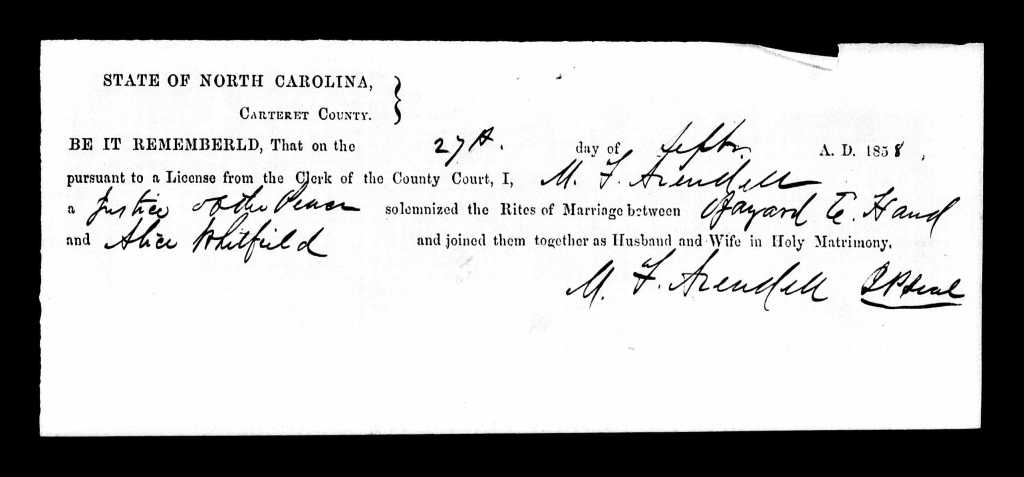 STATE OF NORTH CAROLINA,
CARTERET COUNTY.
BE IT REMEMBERLD, That on the 27th. day of Septbr. A. D. 1858,
pursuant to a License from the Clerk of the County Court, I, M. F. Arendell
a Justice of the Peace solemnized the Rites of Marriage between Bayard E. Hand
and Alice Whitfield and joined them together as Husband and Wife in Holy Matrimony.
M. F. Arendell